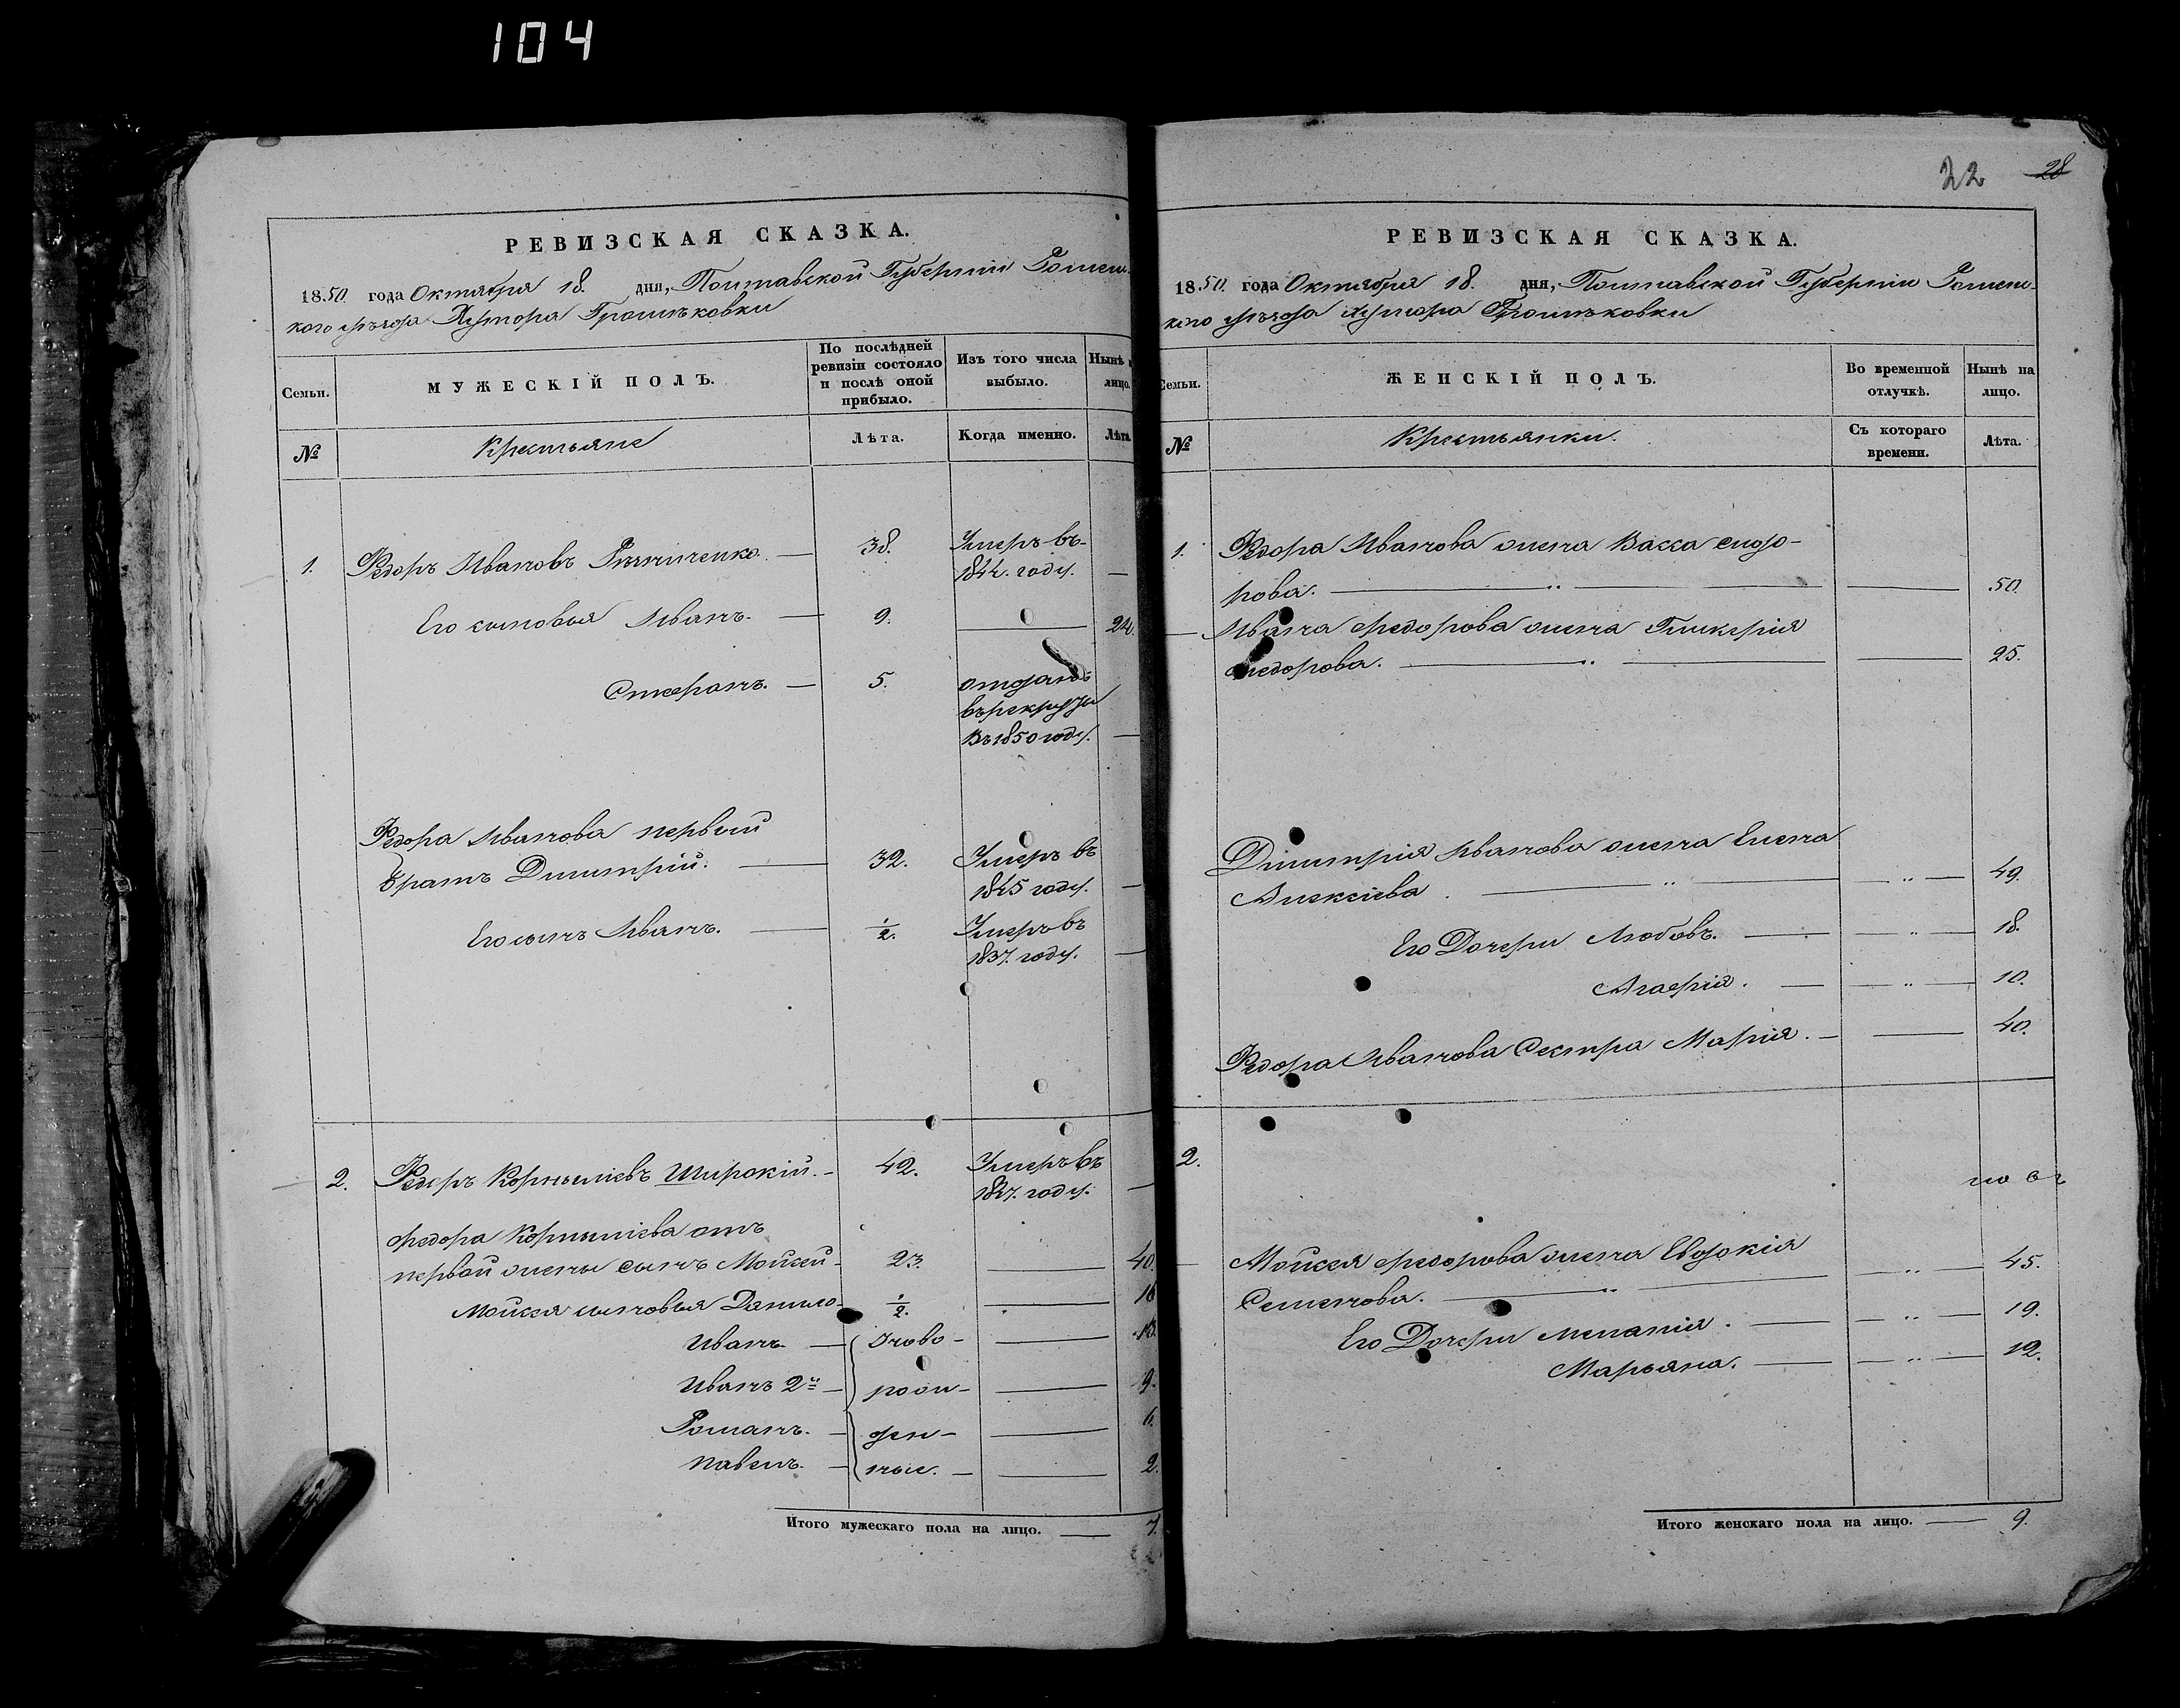 104
22 28
РЕВИЗСКАЯ СКАЗКА.
1850. года Октября 18. дня, Полтавской Губернии Ромен-
кого уѣзда Хутора Грошѣковки
Семьи.
МУЖЕСКІЙ ПОЛЪ.
По послѣдней
ревизіи состояло
и послѣ оной
прибыло.
Изъ того числа
выбыло.
Нынѣ
лицо.
№
Крестьяне
Лѣта.
Когда именно.
Лѣта.
1. Федоръ Ивановъ — 38. Умеръ въ-
1844. году. —
Его сыновья Иванъ. — 9. — 24.
Стефанъ. — 5. отданъ
въ рекруты
въ 1850 году. —
Федора Иванова первый
братъ Димитрій. — 32. Умеръ въ
1845 году. —
Его сынъ Иванъ. — 1/2. Умеръ въ
1837. году. —
2. Федоръ Корнылiевъ Широкій. — 42. Умеръ въ
году. —
Федора Корнылiева отъ
первой жены сынъ Мойсей 23. — 40.
Мойсея сыновья Данило 1/2. — 18
Иванъ. — Ново- — 13.
Иванъ 2й — рож- — 9.
Романъ. — ден- — 6.
Павелъ. — ные. — 2.
Итого мужескаго пола на лицо. — 7.
РЕВИЗСКАЯ СКАЗКА.
1850. года Октября 18. дня, Полтавской Губерніи Ромен-
кого уѣзда Хутора Грошѣковки
Семьи.
ЖЕНСКІЙ ПОЛЪ.
Во временной
отлучкѣ.
Нынѣ на
лицо.
№
Крестьянки.
Съ котораго
времени.
Лѣта.
1. Федора Иванова жена Васса Сидо-
рова. — „ — — 50.
— Ивана Федорова жена Гликерія
Федорова. — „ — — 25.
Димитрія Иванова жена Елена
Алексіева. — „ — — „ — 49.
Его Дочери Любовь. — — „ — 18.
Агафія. — — „ — 10.
Федора Иванова Сестра Марія. — — 40.
2.
Мойсея Федорова жена Евдокія
Семенова. — „ — — „ — 45.
Его Дочери Меланія. — — „ — 19.
Марьяна. — — „ — 12.
Итого женскаго пола на лицо. — 9.